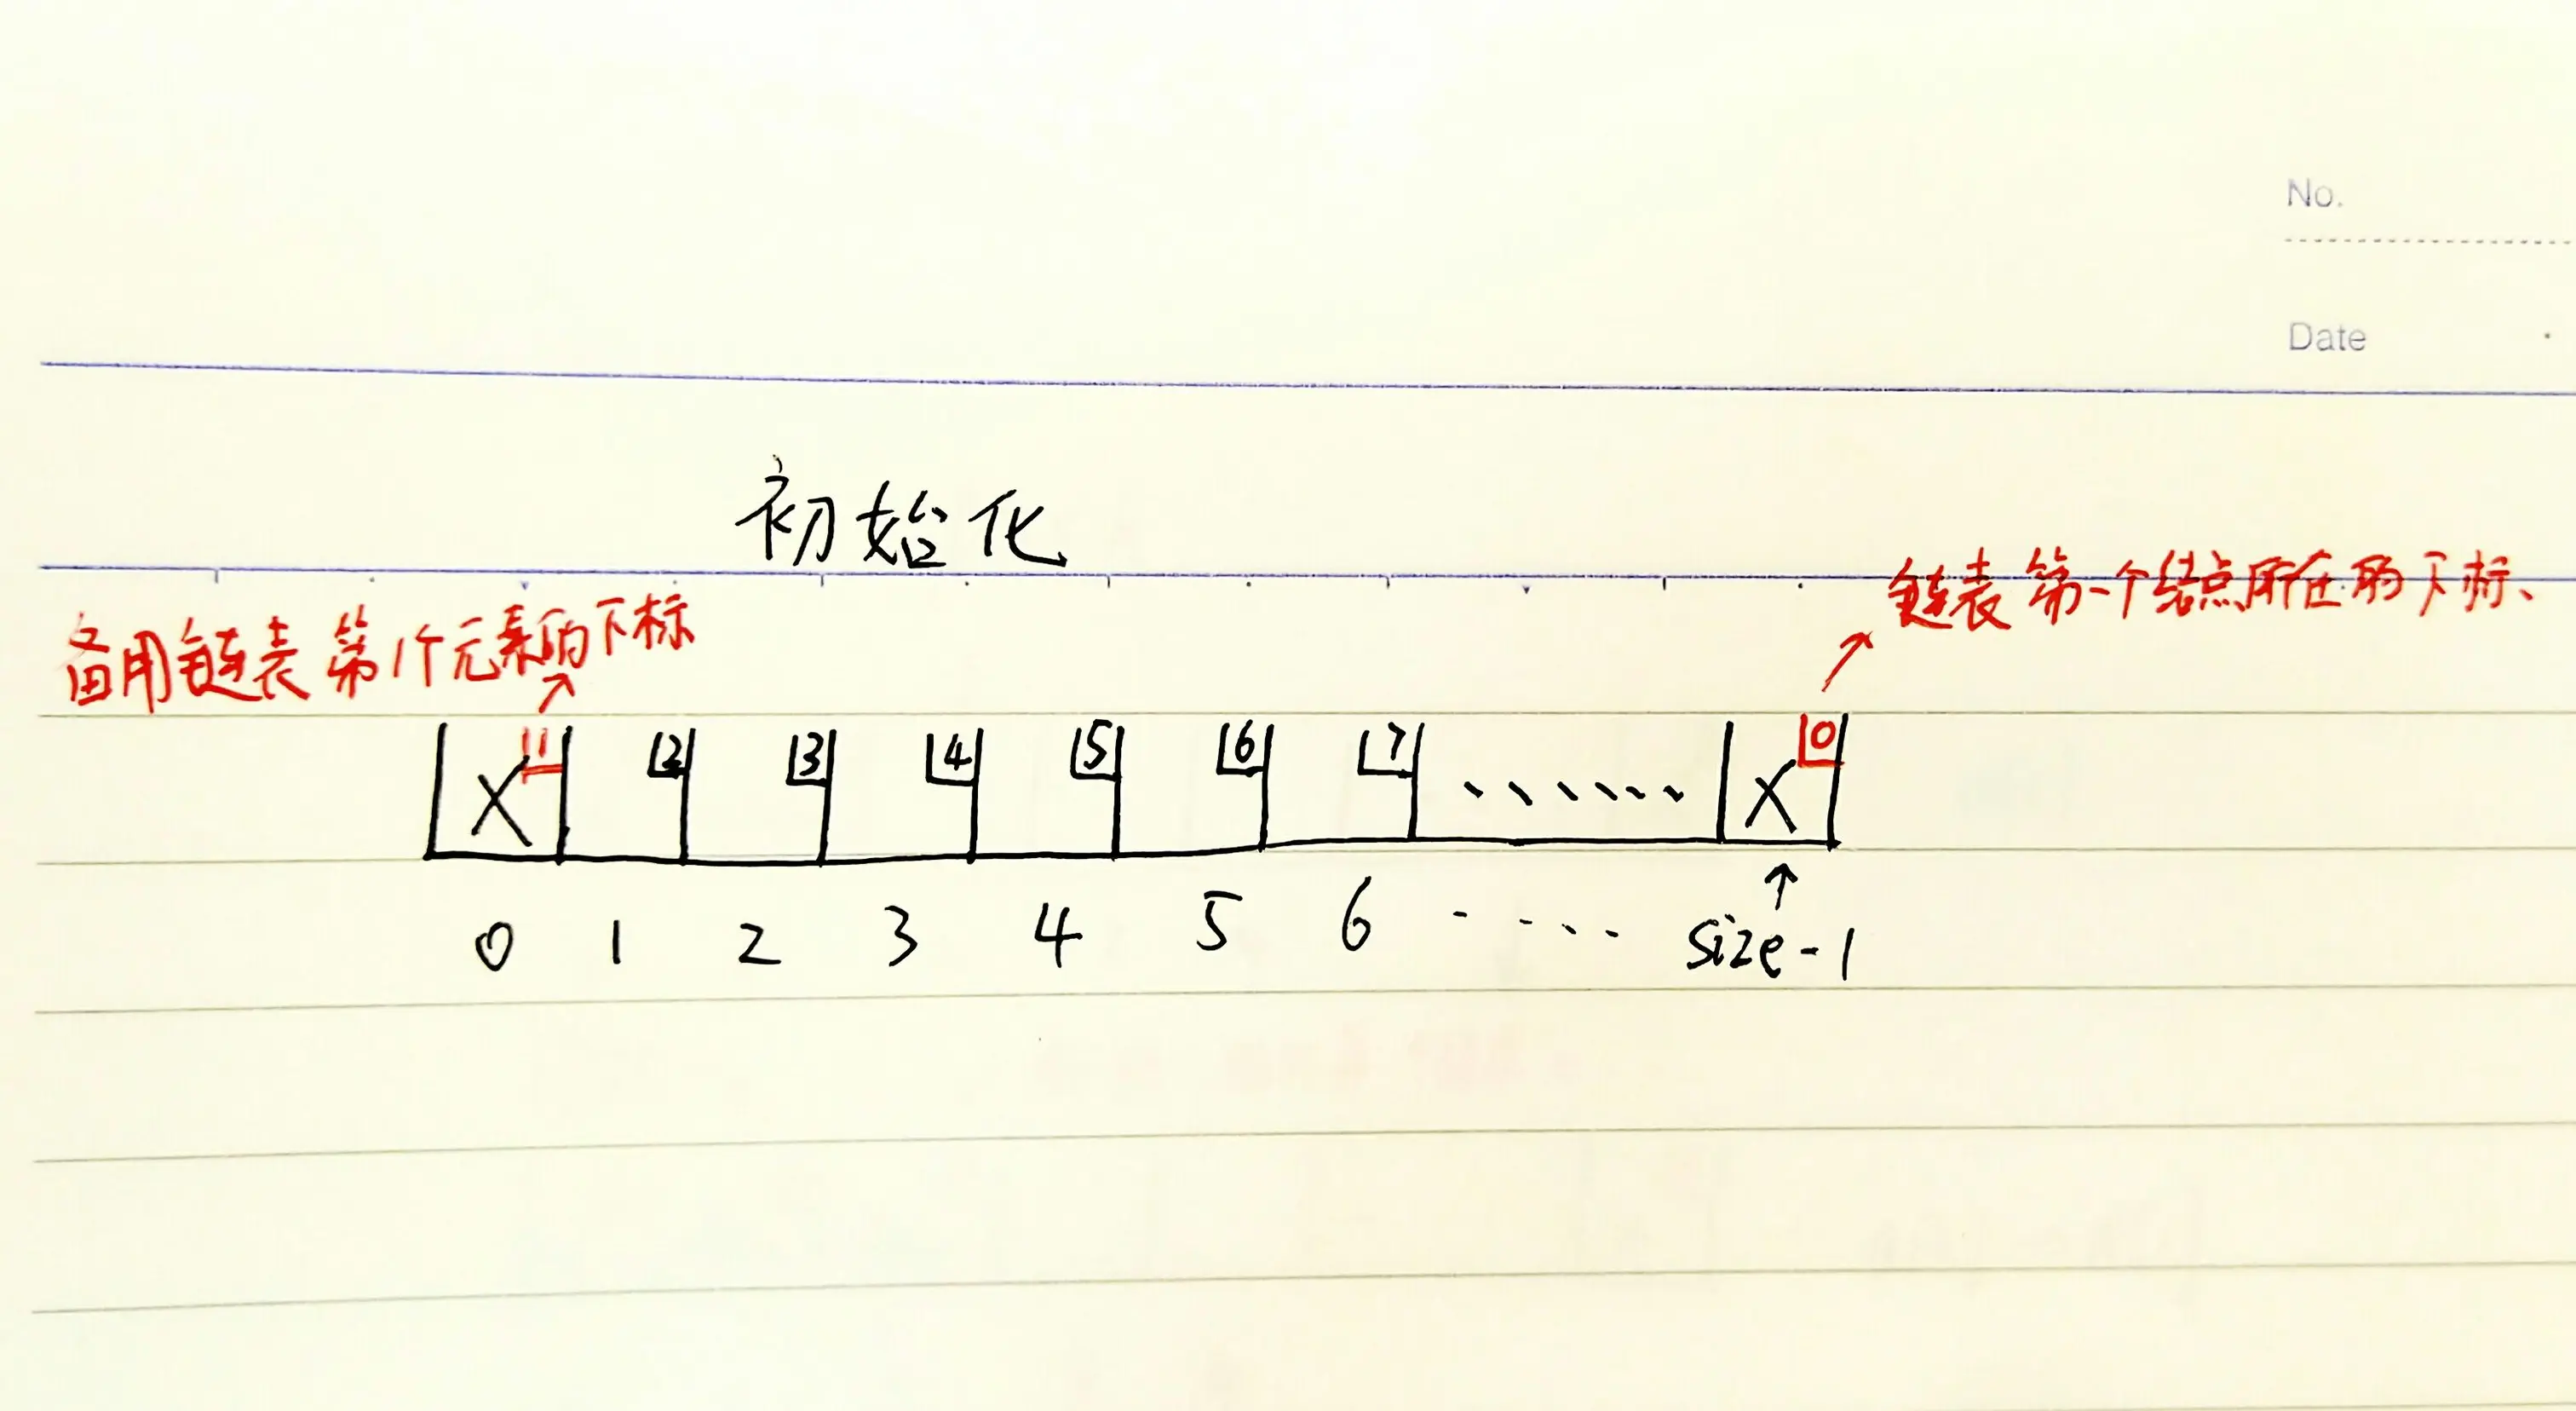 No.
Date
初始化
链表第一个结点所在的下标、
备用链表第1个元素的下标
X 1 2 3 4 5 6 7 ...... X 0
0 1 2 3 4 5 6 ..... size-1